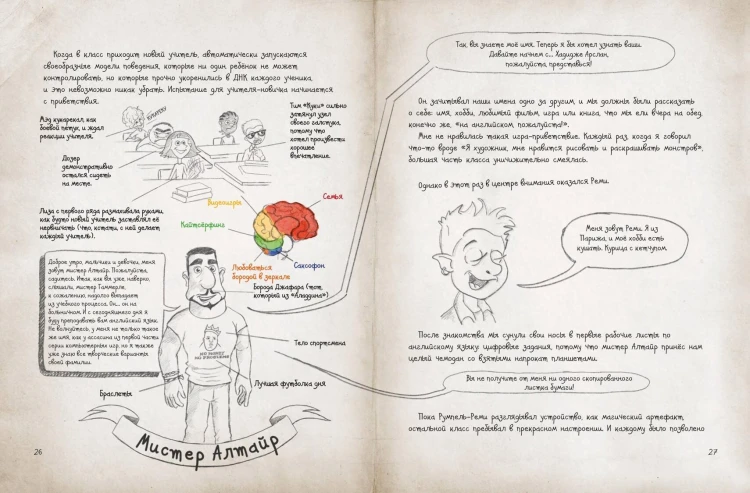 Когда в класс приходит новый учитель, автоматически запускаются
своеобразные модели поведения, которые ни один ребёнок не может
контролировать, но которые прочно укоренились в ДНК каждого ученика,
и это невозможно никак убрать. Испытание для учителя-новичка начинается
с приветствия.
Мэд кукарекал, как
боевой петух, и ждал
реакции учителя.
Тим «Куки» сильно
затянул узел
своего галстука,
потому что
хотел произвести
хорошее
впечатление.
Дозер
демонстративно
остался сидеть
на месте.
Лиза с первого ряда размахивала руками,
как будто новый учитель заставлял её
нервничать (что, кстати, с ней делает
каждый учитель).
Видеоигры
Семья
Кайтсёрфинг
Любоваться
бородой в зеркале
Саксофон
Доброе утро, мальчики и девочки, меня
зовут мистер Алтайр. Пожалуйста,
садитесь. Итак, как вы уже, наверно,
слышали, мистер Таммерле,
к сожалению, надолго выпадает
из учебного процесса. Он... он на
больничном. И с сегодняшнего дня я
буду преподавать вам английский язык.
Не волнуйтесь, у меня не только такое
же имя, как у ассасина из первой части
серии компьютерных игр, но я также
уже знаю все творческие варианты
своей фамилии.
Борода Джафара (тот,
который из «Аладдина»)
Тело спортсмена
Лучшая футболка дня
Браслеты
Мистер Алтайр
26
Так, вы знаете моё имя. Теперь я бы хотел узнать ваши.
Давайте начнём с... Хадидже Арслан,
пожалуйста, представься!
Он зачитывал наши имена одно за другим, и мы должны были рассказать
о себе: имя, хобби, любимый фильм, игра или книга, что мы ели вчера на обед,
конечно же, «на английском пожалуйста!».
Мне не нравилась такая игра-приветствие. Каждый раз, когда я говорил
что-то вроде «Я художник, мне нравится рисовать и раскрашивать монстров»,
большая часть класса уничижительно смеялась.
Однако в этот раз в центре внимания оказался Реми.
Меня зовут Реми. Я из
Парижа, и моё хобби есть
кушать. Курица с кетчупом.
После знакомства мы сунули свои носы в первые рабочие листы по
английскому языку: цифровые задания, потому что мистер Алтайр принёс нам
целый чемодан со взятыми напрокат планшетами.
Вы не получите от меня ни одного скопированного
листка бумаги!
Пока Румпель-Реми разглядывал устройство, как магический артефакт,
остальной класс пребывал в прекрасном настроении. И каждому было позволено
27